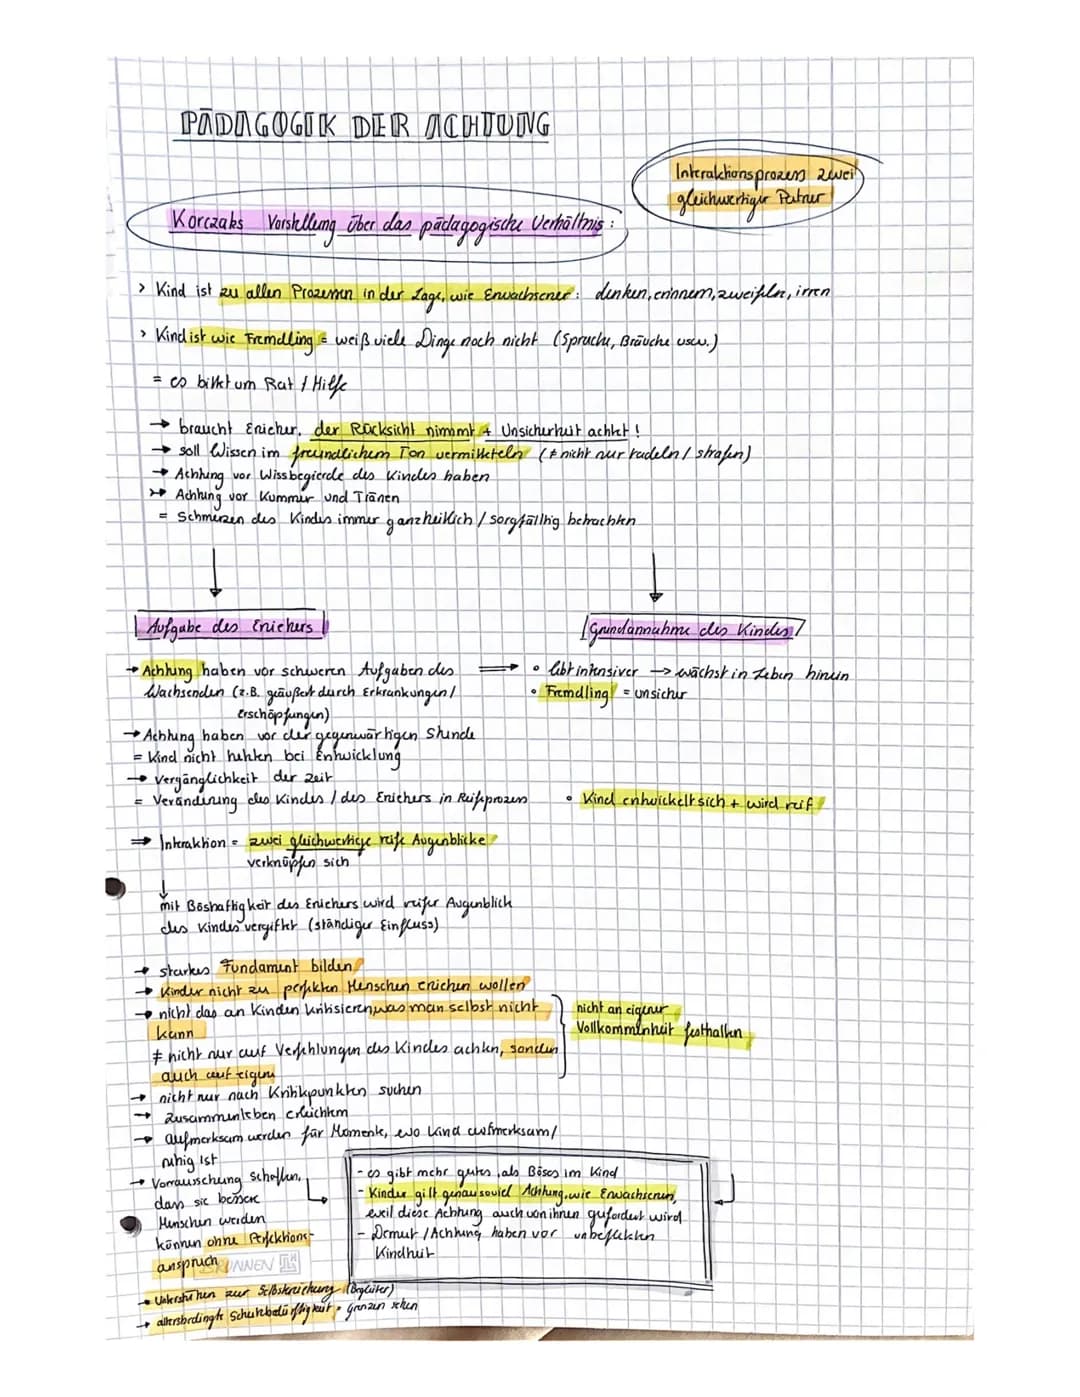 PÄDAGOGIK DER ACHTUNG
Interaktionsprozess zwei
gleichwertiger Partner
Korczaks Vorstellung über das pädagogische Verhältnis:
> Kind ist zu allen Prozessen in der Lage, wie Erwachsener: denken, erinnern, zweifeln, irren
> Kind ist wie Fremdling = weiß viele Dinge noch nicht (Sprache, Bräuche usw.)
= es bittet um Rat / Hilfe
→ braucht Erzieher, der Rücksicht nimmt + Unsicherheit achtet!
→ soll Wissen im freundlichem Ton vermitteln (≠ nicht nur tadeln / strafen)
→ Achtung vor Wissbegierde des Kindes haben
→ Achtung vor Kummer und Tränen
= Schmerzen des Kindes immer ganzheitlich / sorgfälltig betrachten
Aufgabe des Erziehers
Grundannahme des Kindes
→ Achtung haben vor schweren Aufgaben des
Wachsenden (z.B. geäußert durch Erkrankungen /
Erschöpfungen)
⇒ • lebt intensiver → wächst in Leben hinein
• Fremdling = unsicher
→ Achtung haben vor der gegenwärtigen Stunde
= Kind nicht hetzen bei Entwicklung
→ Vergänglichkeit der Zeit
= Veränderung des Kindes / des Erziehers in Reifeprozess
• Kind entwickelt sich + wird reif
⇒ Interaktion = zwei gleichwertige reife Augenblicke
verknüpfen sich
↓
mit Boshaftigkeit des Erziehers wird reifer Augenblick
des Kindes vergiftet (ständiger Einfluss)
→ starkes Fundament bilden
→ Kinder nicht zu perfekten Menschen erziehen wollen
→ nicht das an Kindern kritisieren, was man selbst nicht
kann
≠ nicht nur auf Verfehlungen des Kindes achten, sondern
auch auf eigene
nicht an eigener
Vollkommenheit festhalten
→ nicht nur nach Kritikpunkten suchen
→ Zusammenleben erleichtern
→ aufmerksam werden für Momente, wo Kind aufmerksam/
ruhig ist
→ Vorrausschung schaffen,
dass sie bessere
Menschen werden
können ohne Perfektions-
anspruch
- es gibt mehr gutes, als Böses im Kind
- Kinder gilt genau soviel Achtung, wie Erwachsenen,
weil diese Achtung auch von ihnen gefordert wird
- Demut / Achtung haben vor unbefleckten
Kindheit
BRUNNEN
→ Unterstützen zur Selbsterziehung (Begleiter)
→ altersbedingte Schutzbedürftigkeit, grenzen sehen